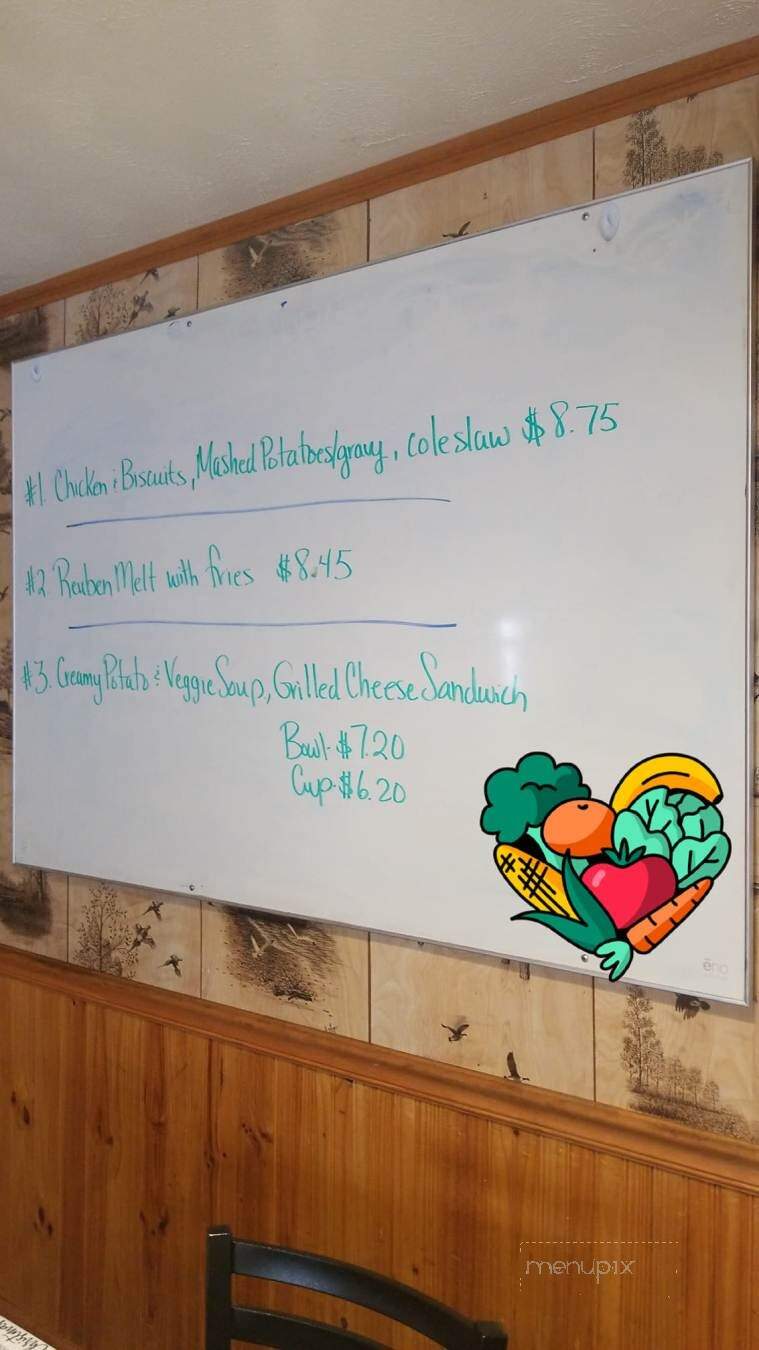 #1. Chicken & Biscuits, Mashed Potatoes/gravy, coleslaw $8.75
#2. Reuben Melt with fries $8.45
#3. Creamy Potato & Veggie Soup, Grilled Cheese Sandwich
Bowl-$7.20
Cup-$6.20
eno
menupix